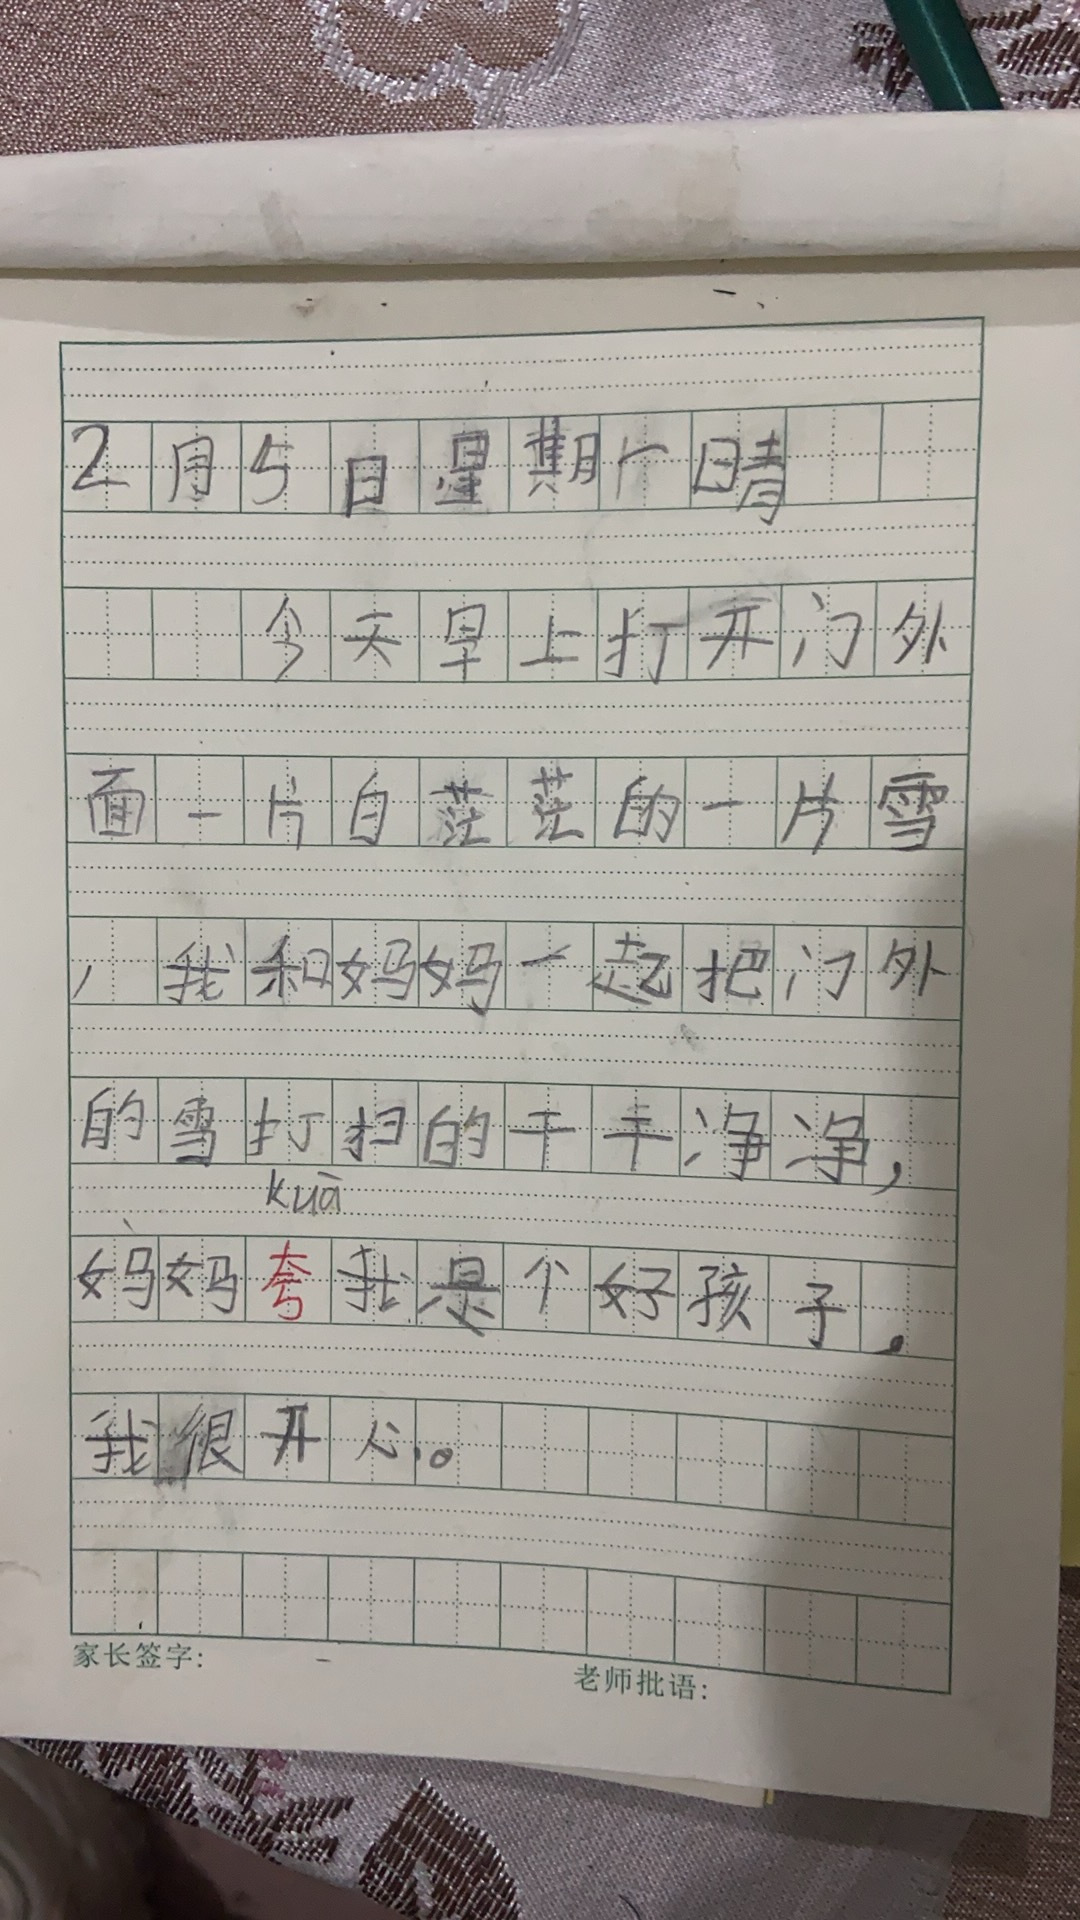 2月5日星期 晴
今天早上打开门外
面一片白茫茫的一片雪
，我和妈妈一起把门外
的雪打扫的干干净净，
kuā
妈妈夸我是个好孩子。
我很开心。
家长签字:
老师批语: